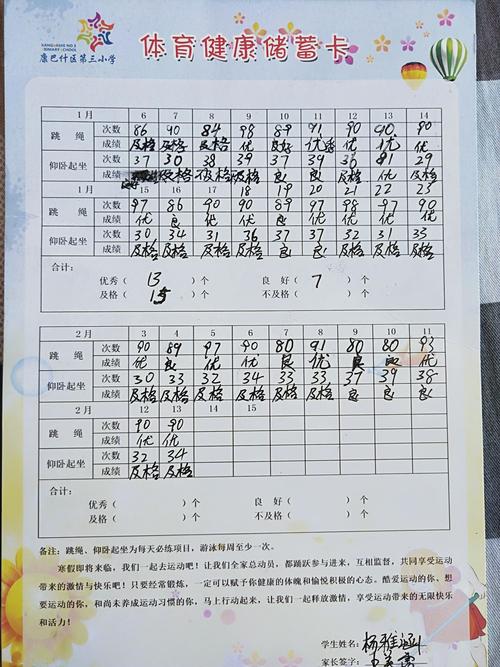 康巴什区第三小学
体育健康储蓄卡
1月 6 7 8 9 10 11 12 13 14
跳绳 次数 86 90 84 98 89 91 90 90 90
成绩 及格 及格 及格 优 良好 优秀 优 优 优
仰卧起坐 次数 37 30 38 39 37 39 36 81 29
成绩 及格 不及格 及格 良 良 良 及格 及格
1月 15 16 17 18 19 20 21 22 23
跳绳 次数 97 86 90 90 89 97 98 97 90
成绩 优 良 优 优 良 优 优 优 优
仰卧起坐 次数 30 34 31 36 37 37 32 31 33
成绩 及格 及格 及格 及格 良 良 及格 及格 及格
合计：
优秀（ 13 ）个 良 好（ 7 ）个
及格（ 15 ）个 不及格（ ）个
2月 3 4 5 6 7 8 9 10 11
跳绳 次数 90 89 97 90 80 91 80 80 93
成绩 优 良 优 优 良 优 良 良 优
仰卧起坐 次数 30 33 32 34 33 33 37 39 38
成绩 及格 及格 及格 及格 及格 及格 良 良 良
2月 12 13 14 15
跳绳 次数 90 90
成绩 优 优
仰卧起坐 次数 32 34
成绩 及格 及格
合计：
优秀（ ）个 良 好（ ）个
及格（ ）个 不及格（ ）个
备注：跳绳、仰卧起坐为每天必练项目，游泳每周至少一次。
寒假即将来临，我们一起去运动吧！让我们全家总动员，都踊跃参与进来，互相监督，共同享受运动
带来的激情与快乐吧！只要经常锻炼，一定可以赋予你健康的体魄和愉悦积极的心态。酷爱运动的你、想
要运动的你、和尚未养成运动习惯的你，马上行动起来，让我们一起释放激情，享受运动带来的无限快乐
和活力！
学生姓名：杨雅涵
家长签字：